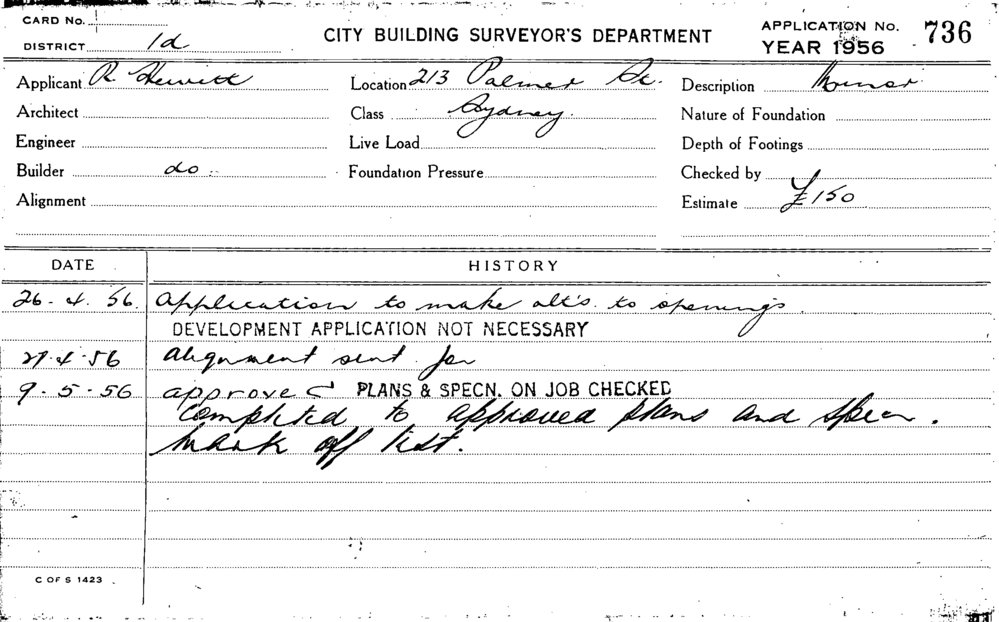 CARD No.
DISTRICT 1d
CITY BUILDING SURVEYOR'S DEPARTMENT
APPLICATION No. 736
YEAR 1956
Applicant R Hewitt
Location 213 Palmer St.
Description Minor
Architect
Class Sydney.
Nature of Foundation
Engineer
Live Load
Depth of Footings
Builder do
Foundation Pressure
Checked by
Alignment
Estimate £150
DATE HISTORY
26. 4. 56. Application to make alt's. to openings.
DEVELOPMENT APPLICATION NOT NECESSARY
27.4.56 Alignment sent for
9.5.56 approved PLANS & SPECN. ON JOB CHECKED
Completed to approved plans and specn.
Mark off list.
C OF S 1423